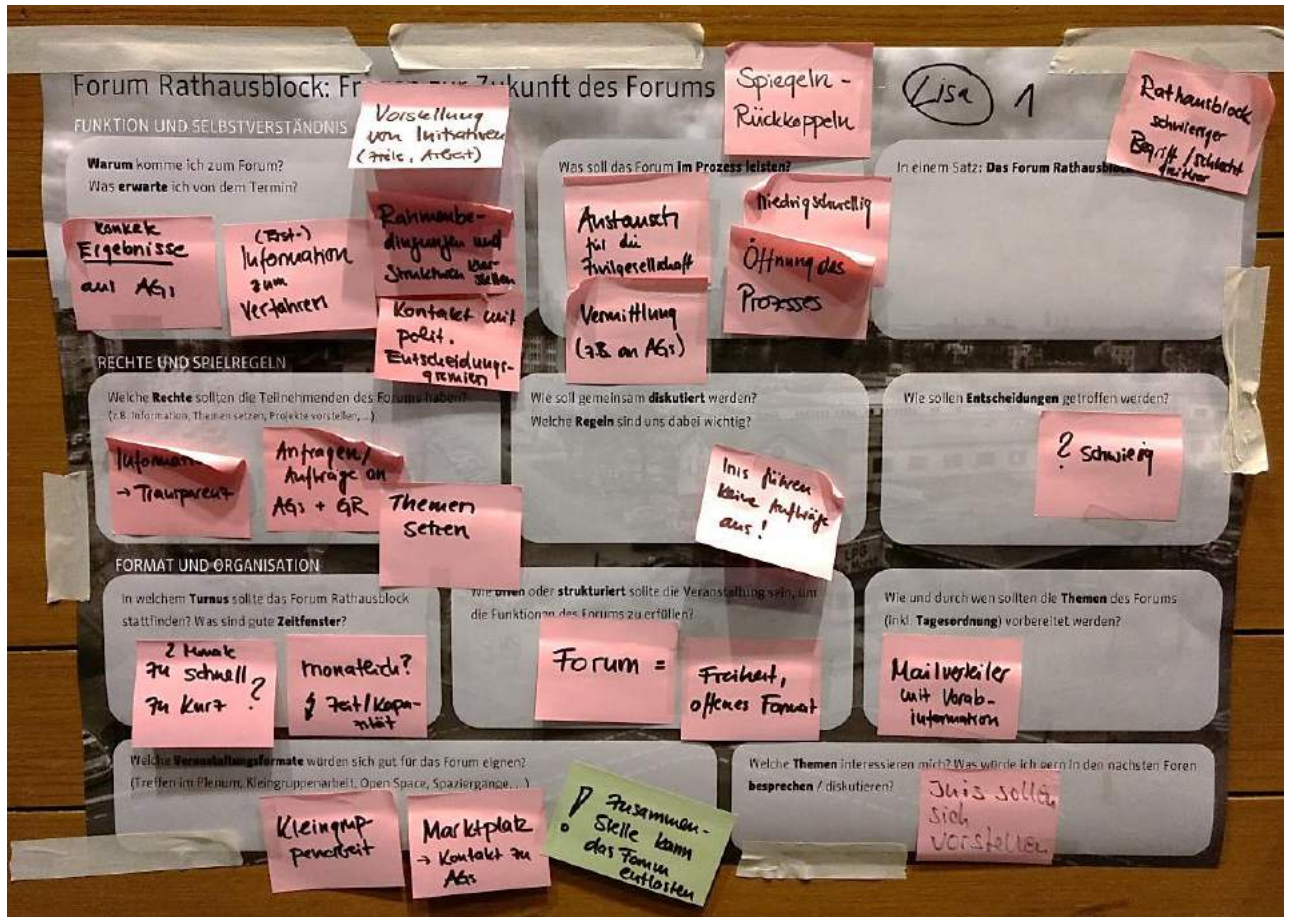 Forum Rathausblock: Fr zur Zukunft des Forums
Spiegeln -
Rückkoppeln
Lisa 1
Rathausblock
schwieriger
Begriff / schlecht
FUNKTION UND SELBSTVERSTÄNDNIS
Vorstellung
von Initiativen
(Ziele, Arbeit)
Warum komme ich zum Forum?
Was erwarte ich von dem Termin?
Konkrete
Ergebnisse
aus AGs
(Erst-)
Information
zum
Verfahren
Rahmenbe-
dingungen und
Strukturen klar-
stellen
Kontakt mit
polit.
Entscheidungs-
gremien
Was soll das Forum im Prozess leisten?
Austausch
für die
Zivilgesellschaft
Vermittlung
(z.B. an AGs)
Niedrigschwellig
Öffnung des
Prozesses
In einem Satz: Das Forum Rathausblock
RECHTE UND SPIELREGELN
Welche Rechte sollten die Teilnehmenden des Forums haben?
(z.B. Information, Themen setzen, Projekte vorstellen, ...)
Information
→ Transparenz
Anfragen/
Aufträge an
AGs + GR
Themen
setzen
Wie soll gemeinsam diskutiert werden?
Welche Regeln sind uns dabei wichtig?
Inis führen
keine Aufträge
aus!
Wie sollen Entscheidungen getroffen werden?
? schwierig
FORMAT UND ORGANISATION
In welchem Turnus sollte das Forum Rathausblock
stattfinden? Was sind gute Zeitfenster?
2 Monate
zu schnell
zu kurz ?
monatlich?
Zeit/Kapa-
zität
Wie offen oder strukturiert sollte die Veranstaltung sein, um
die Funktionen des Forums zu erfüllen?
Forum =
Freiheit,
offenes Format
Wie und durch wen sollten die Themen des Forums
(inkl. Tagesordnung) vorbereitet werden?
Mailverteiler
mit Vorab-
information
Welche Veranstaltungsformate würden sich gut für das Forum eignen?
(Treffen im Plenum, Kleingruppenarbeit, Open Space, Spaziergänge, ...)
Kleingrup
penarbeit
Marktplatz
→ Kontakt zu
AGs
! Zusammen-
Stelle kann
das Forum
entlasten
Welche Themen interessieren mich? Was würde ich gern in den nächsten Foren
besprechen / diskutieren?
Inis sollen
sich
vorstellen
LPG